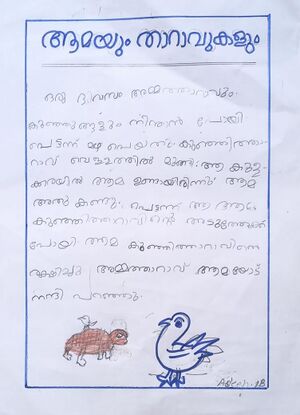 ആമയും താറാവുകളും
ഒരു ദിവസം അമ്മത്താറാവും
കുഞ്ഞുങ്ങളും നീന്താൻ പോയി
പെട്ടന്ന് മഴ പെയ്തു. കുഞ്ഞിത്താ
റാവ് വെള്ളത്തിൽ മുങ്ങി. ആ കുള
ക്കരയിൽ ആമ ഉണ്ടായിരുന്നു. ആമ
അതു കണ്ടു. പെടന്ന് ആ ആമ
കുഞ്ഞിത്താറാവിന്റെ അടുത്തേക്ക്
പോയി. ആമ കുഞ്ഞിത്താറാവിനെ
രക്ഷിച്ചു. അമ്മത്താറാവ് ആമയോട്
നന്ദി പറഞ്ഞു.
1B